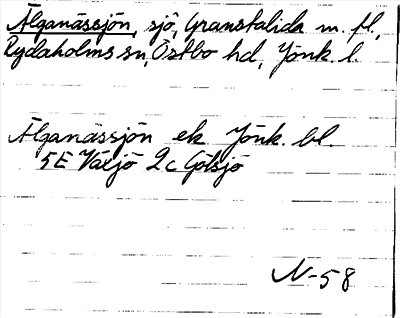 Älganässjön, sjö, Granstalida m. fl.,
Rydaholms sn, Östbo hd, Jönk. l.
Älganässjön ek Jönk. bl.
5E Växjö 2c Gölsjö
N-58